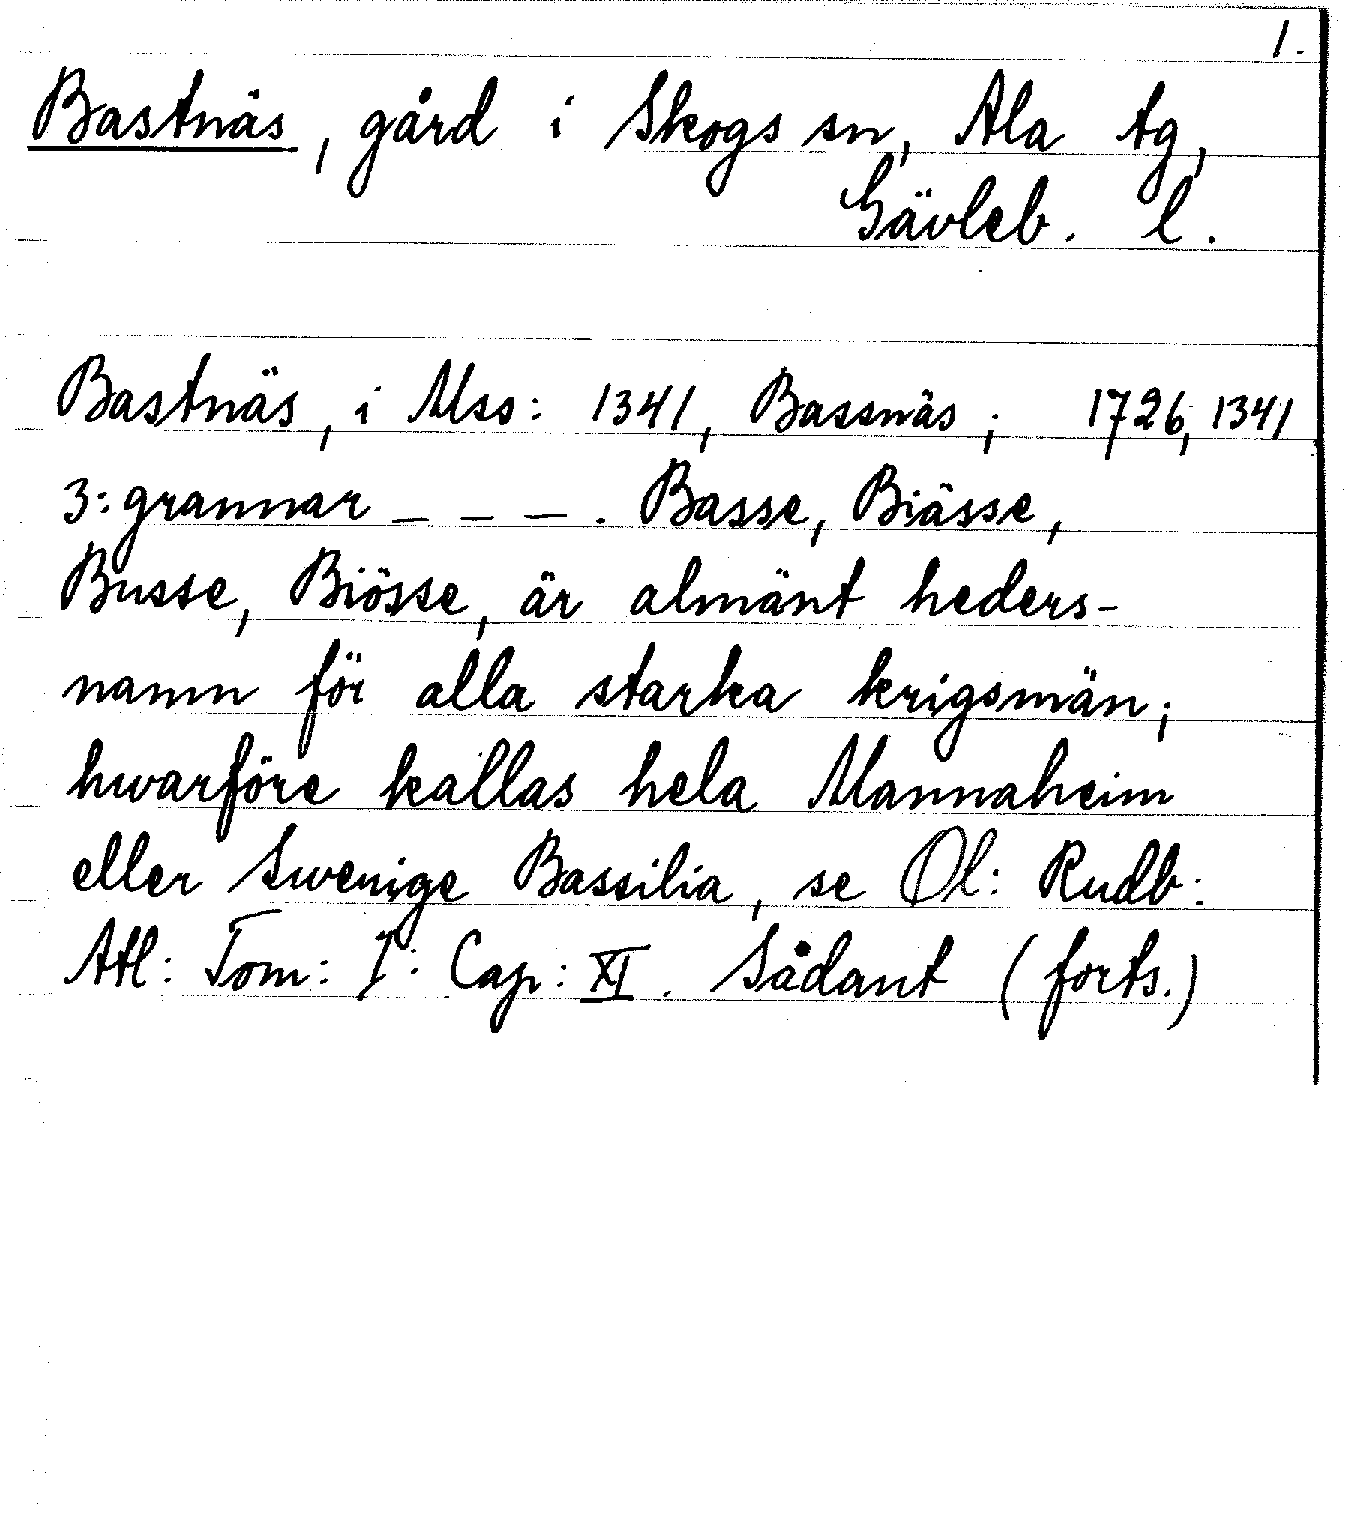 1.
Bastnäs, gård i Skogs sn, Ala tg,
Gävleb. l.
Bastnäs, i Mss: 1341, Bassnäs; 1726, 1341
3: grannar _ _ _ . Basse, Biässe,
Busse, Biösse, är almänt heders-
namn för alla starka krigsmän;
hwarföre kallas hela Mannaheim
eller Swenige Bassilia, se Ol: Rudb:
Atl: Tom: I: Cap: XI. Sådant (forts.)